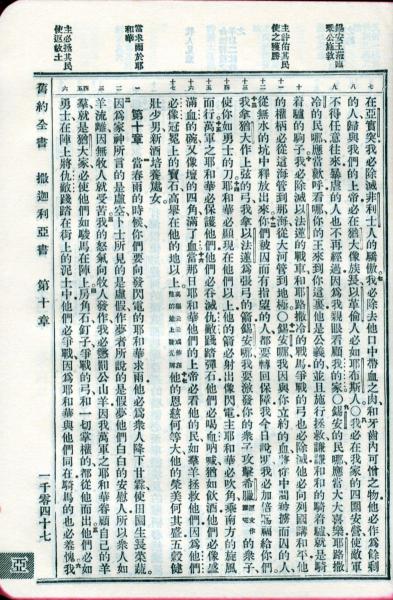 錫安王蒞臨
主許佑其民
使之獲勝
當求雨於耶
和華
主必拯其民
使返故土
在亞實突我必除滅非利士人的驕傲我必除去他口中帶血之肉和牙齒內可憎之物他必作為餘剩
的人歸與我們的上帝必在猶大像族長以革倫人必如耶布斯人〇我必在我家的四圍安營使敵軍
不得任意往來暴虐的人也不再經過因為我親眼看顧我的家〇錫安的民哪應當大大喜樂耶路撒
冷的民哪應當歡呼看哪你的王來到你這裏他是公義的並且施行拯救謙謙和和的騎着驢就是騎
着驢的駒子我必除滅以法蓮的戰車和耶路撒冷的戰馬爭戰的弓也必除滅他必向列國講和平他
的權柄必從這海管到那海從大河管到地極〇錫安哪我因與你立約的血將你中間被擄而囚的人
從無水的坑中釋放出來你們被囚而有指望的人都要轉回保障我今日說明我必加倍賜福給你們
我拿猶大作上弦的弓我拿以法蓮為張弓的箭錫安哪我要激發你的衆子攻擊希臘的衆子
使你如勇士的刀耶和華必顯現在他們以上他的箭必射出像閃電主耶和華必吹角乘南方的旋風
而行萬軍之耶和華必保護他們他們必吞滅仇敵踐踏彈石他們必喝血吶喊猶如飲酒他們必像盛
滿血的碗又像壇的四角滿了血當那日耶和華他們的上帝必看他的民如羣羊拯救他們因為他們
必像冠冕上的寶石高舉在他的地以上他的恩慈何等大他的榮美何其盛五穀健
壯少男新酒培養處女
第十章 當春雨的時候你們要向發閃電的耶和華求雨他必為衆人降下甘霖使田園生長菜蔬
因為家神所言的是虛空卜士所見的是虛假作夢者所說的是假夢他們白白的安慰人所以衆人如
羊流離因無牧人就受苦我的怒氣向牧人發作我必懲罰公山羊因我萬軍之耶和華眷顧自己的羊
羣就是猶大家必使他們如駿馬在陣上房角石釘子爭戰的弓和一切掌權的都從他而出他們必如
勇士在陣上將仇敵踐踏在街上的泥土中他們必爭戰因為耶和華與他們同在騎馬的也必羞愧我
舊約全書 撒迦利亞書 第十章 一千零四十七
亞